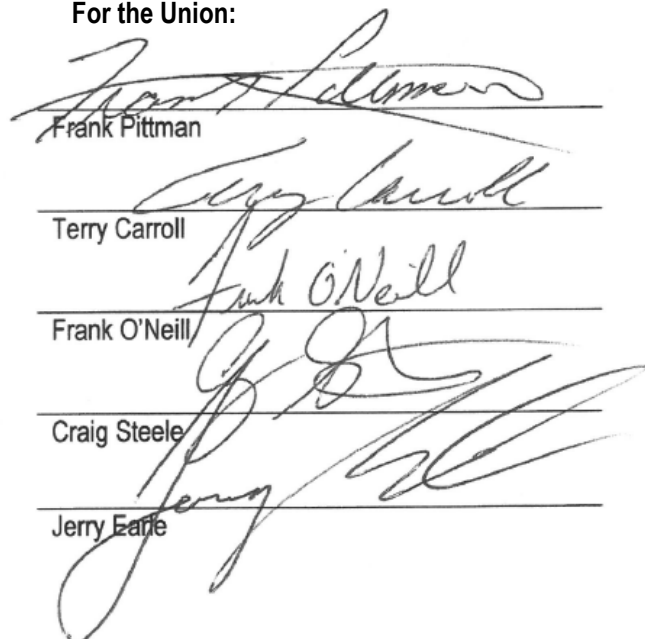 For the Union:
Frank Pittman
Frank Pittman
Terry Carroll
Terry Carroll
Frank O'Neill
Frank O'Neill
Craig Steele
Jerry
Jerry Earle